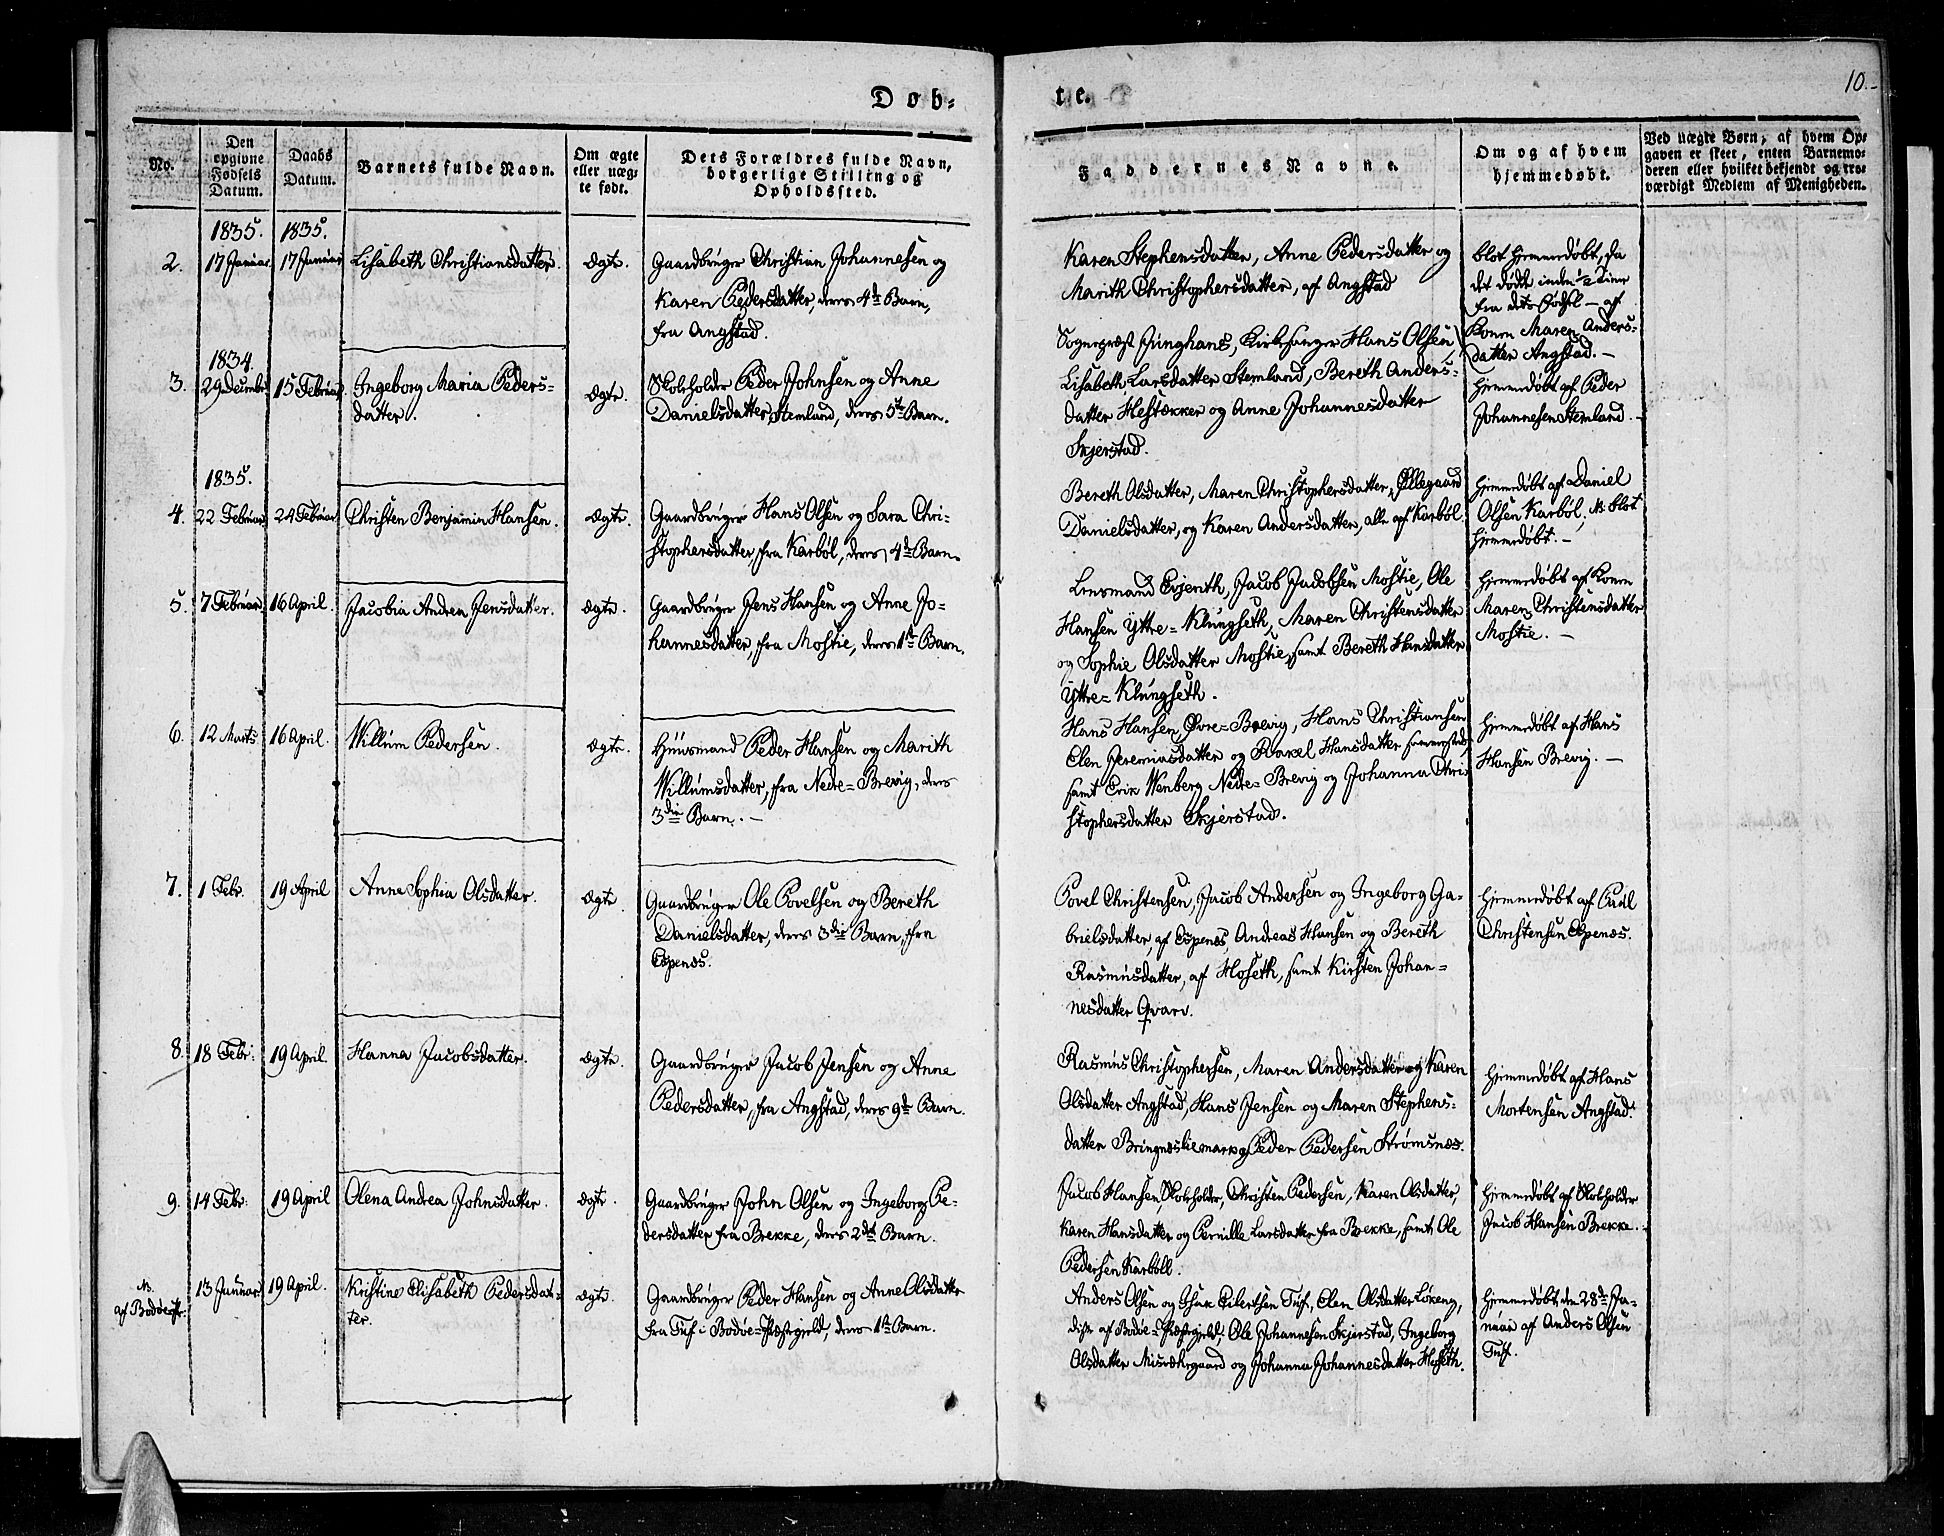 10.
Døb-
te.
No.
Den opgivne Fødsels Datum.
Daabs Datum.
Barnets fulde Navn.
Om ægte eller uægte født.
Dets Forældres fulde Navn, borgerlige Stilling og Opholdssted.
Faddernes Navne.
Om og af hvem hjemmedøbt.
Ved uægte Børn, af hvem Opgaven er skeet, enten Barnemoderen eller hvilket bekjendt og troværdigt Medlem af Menigheden.
1835. 1835.
2. 17 Januar 17 Januar Lisabeth Christiansdatter. Ægte.
Gaardbruger Christian Johannesen og
Karen Pedersdatter, deres 4de Barn,
fra Angstad.
Karen Stephensdatter, Anne Pedersdatter og
Marith Christophersdatter, af Angstad
blot hjemmedøbt, da
det døde inden ½ Time
fra dets Fødsel — af
Konen Maren Anders-
datter Angstad. —
1834.
3. 29 December 15 Februar Ingeborg Maria Peders-
datter. Ægte.
Skoleholder Peder Johnsen og Anne
Danielsdatter, Stemland, deres 5te Barn.
Sognepræst Junghans, Kirkesanger Hans Olsen
Lisabeth Larsdatter Stemland, Bereth Anders-
datter Hestækker og Anne Johannesdatter
Skjerstad.
Hjemmedøbt af Peder
Johannesen Stemland. -
1835.
4. 22 Februar 24 Februar Christen Benjamin Hansen. Ægte.
Gaardbruger Hans Olsen og Sara Chri-
stophersdatter, fra Karbøl, deres 4de Barn.
Bereth Olsdatter, Maren Christophersdatter, Øllegaard
Danielsdatter, og Karen Andersdatter, alle af Karbøl.
Hjemmedøbt af Daniel
Olsen Karbøl, N. blot
hjemmedøbt. -
5. 7 Februar 16 April. Jacobia Andrea Jensdatter. Ægte.
Gaardbruger Jens Hansen og Anne Jo-
hannesdatter, fra Mostie, deres 1ste Barn.
Lensmand Evjenth, Jacob Jacobsen Mostie, Ole
Hansen Yttre=Klungseth, Maren Christensdatter
og Sophie Olsdatter Mostie, samt Bereth Hansdatter
Yttre=Klungseth.
Hjemmedøbt af Konen
Maren Christensdatter
Mostie. —
6. 12 Marts 16 April. Willum Pedersen. Ægte.
Huusmand Peder Hansen og Marith
Willumsdatter, fra Nedre=Brevig, deres
3die Barn. —
Hans Hansen Øvre=Brevig, Hans Christiansen
Elen Jeremiasdatter og Rakel Hansdatter sammesteds
samt Erik Wenberg Nedre=Brevig og Johanna Chri-
stophersdatter Skjerstad.
Hjemmedøbt af Hans
Hansen Brevig. —
7. 1 Febr. 19 April Anne Sophia Olsdatter. Ægte.
Gaardbruger Ole Povelsen og Bereth
Danielsdatter, deres 3die Barn, fra
Espenæs.
Povel Christensen, Jacob Andersen og Ingeborg Ga-
brielsdatter, af Espenæs, Andreas Hansen og Bereth
Rasmusdatter, af Hoseth, samt Kirsten Johan-
nesdatter Qvarv.
Hjemmedøbt af Paul
Christensen Espenæs.
8. 18 Febr. 19 April. Hanna Jacobsdatter. Ægte.
Gaardbruger Jacob Jensen og Anne
Pedersdatter, fra Angstad, deres 9de Barn.
Rasmus Christophersen, Maren Andersdatter og Karen
Olsdatter Angstad, Hans Jensen og Maren Stephens-
datter Bringneslie mark og Peder Pedersen Strømsnæs.
Hjemmedøbt af Hans
Mortensen Angstad.
9. 14 Febr. 19 April Olena Andrea Johnsdatter. Ægte.
Gaardbruger John Olsen og Ingeborg Pe-
dersdatter fra Brekke, deres 2det Barn.
Jacob Hansen, Skoleholder, Christen Pedersen, Karen Olsdatter,
Karen Hansdatter og Pernille Larsdatter fra Brekke, samt Ole
Pedersen Karbøll.
Hjemmedøbt af Skoleholder
Jacob Hansen Brekke. -
N.
af Bodøe 13 Januar 19 April. Kristine Elisabeth Pedersdat-
ter. Ægte.
Gaardbruger Peder Hansen og Anne Olsdatter
fra Tuf i Bodøe=Præstegjeld, deres 1ste Barn.
Anders Olsen og Isak Eilertsen Tuf, Elen Olsdatter Løkeng,
disse af Bodøe=Præstegjeld. Ole Johannesen Skjerstad, Ingeborg
Olsdatter Misværgaard og Johanna Johannesdatter Hoseth.
Hjemmedøbt den 28de Ja-
nuar af Anders Olsen
Tuf.